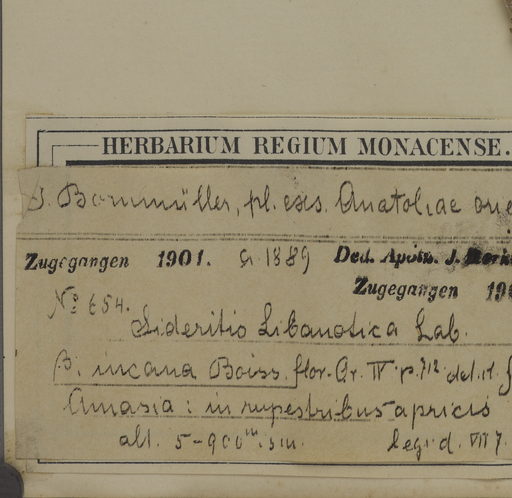 HERBARIUM REGIUM MONACENSE.
J. Bornmüller, pl. exs. Anatoliae
Zugegangen 1901. a. 1889 Ded. Apoth. J.
Zugegangen 190
No 654.
Sideritis Libanotica Lab.
β. incana Boiss. flor. Or. IV p. 712
Amasia: in rupestribus apricis
alt. 5-900 m. s. m. legi d. VII